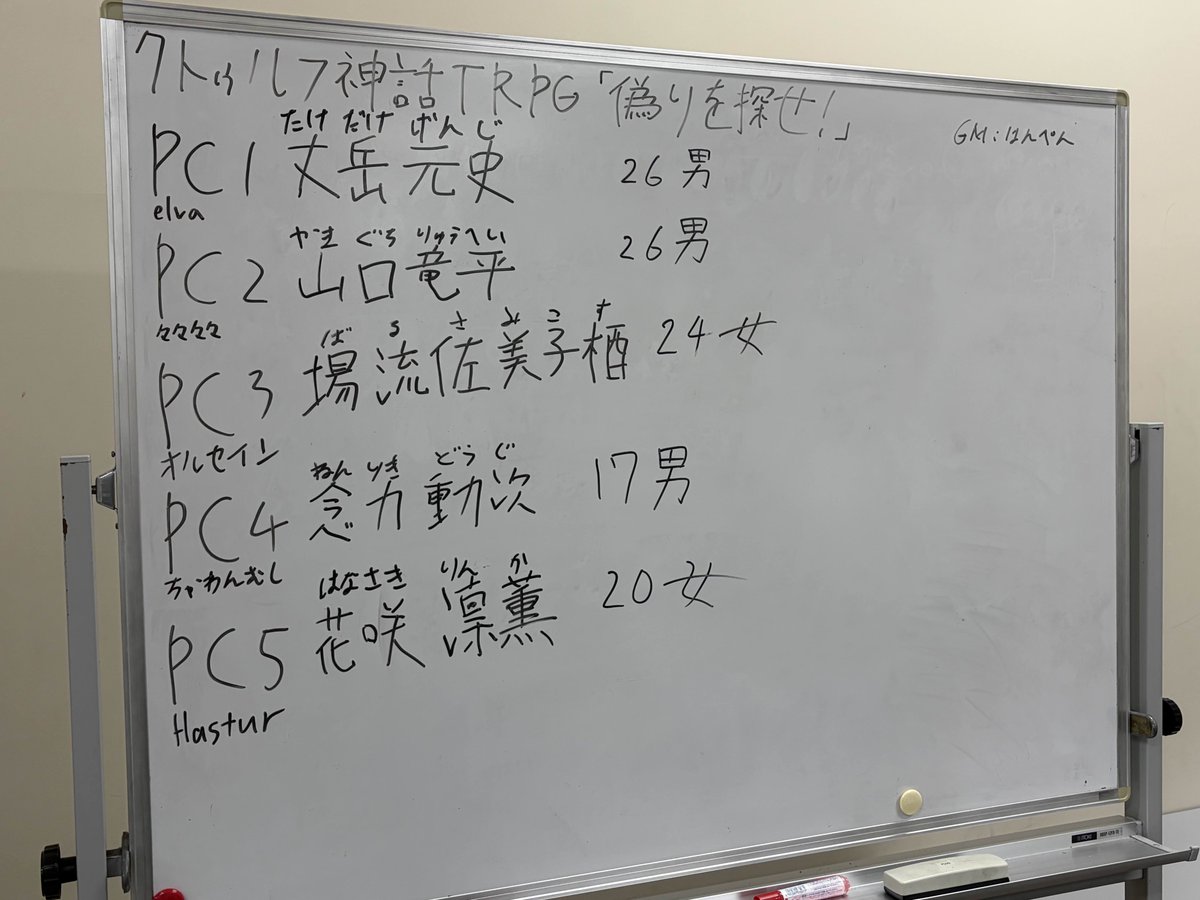 クトゥルフ神話TRPG「偽りを探せ!」
GM:はんぺん
たけ だけ げん じ
PC1 丈岳元史 26 男
elva
やま ぐち りゅうへい
PC2 山口竜平 26 男
々々々々
ば る さ み こ す
PC3 場流佐美子栖 24 女
オルセイン
ねん りき どう じ
PC4 念力動次 17 男
ちゃわんむし
はなさき りん か
PC5 花咲 凛薫 20 女
Hastur